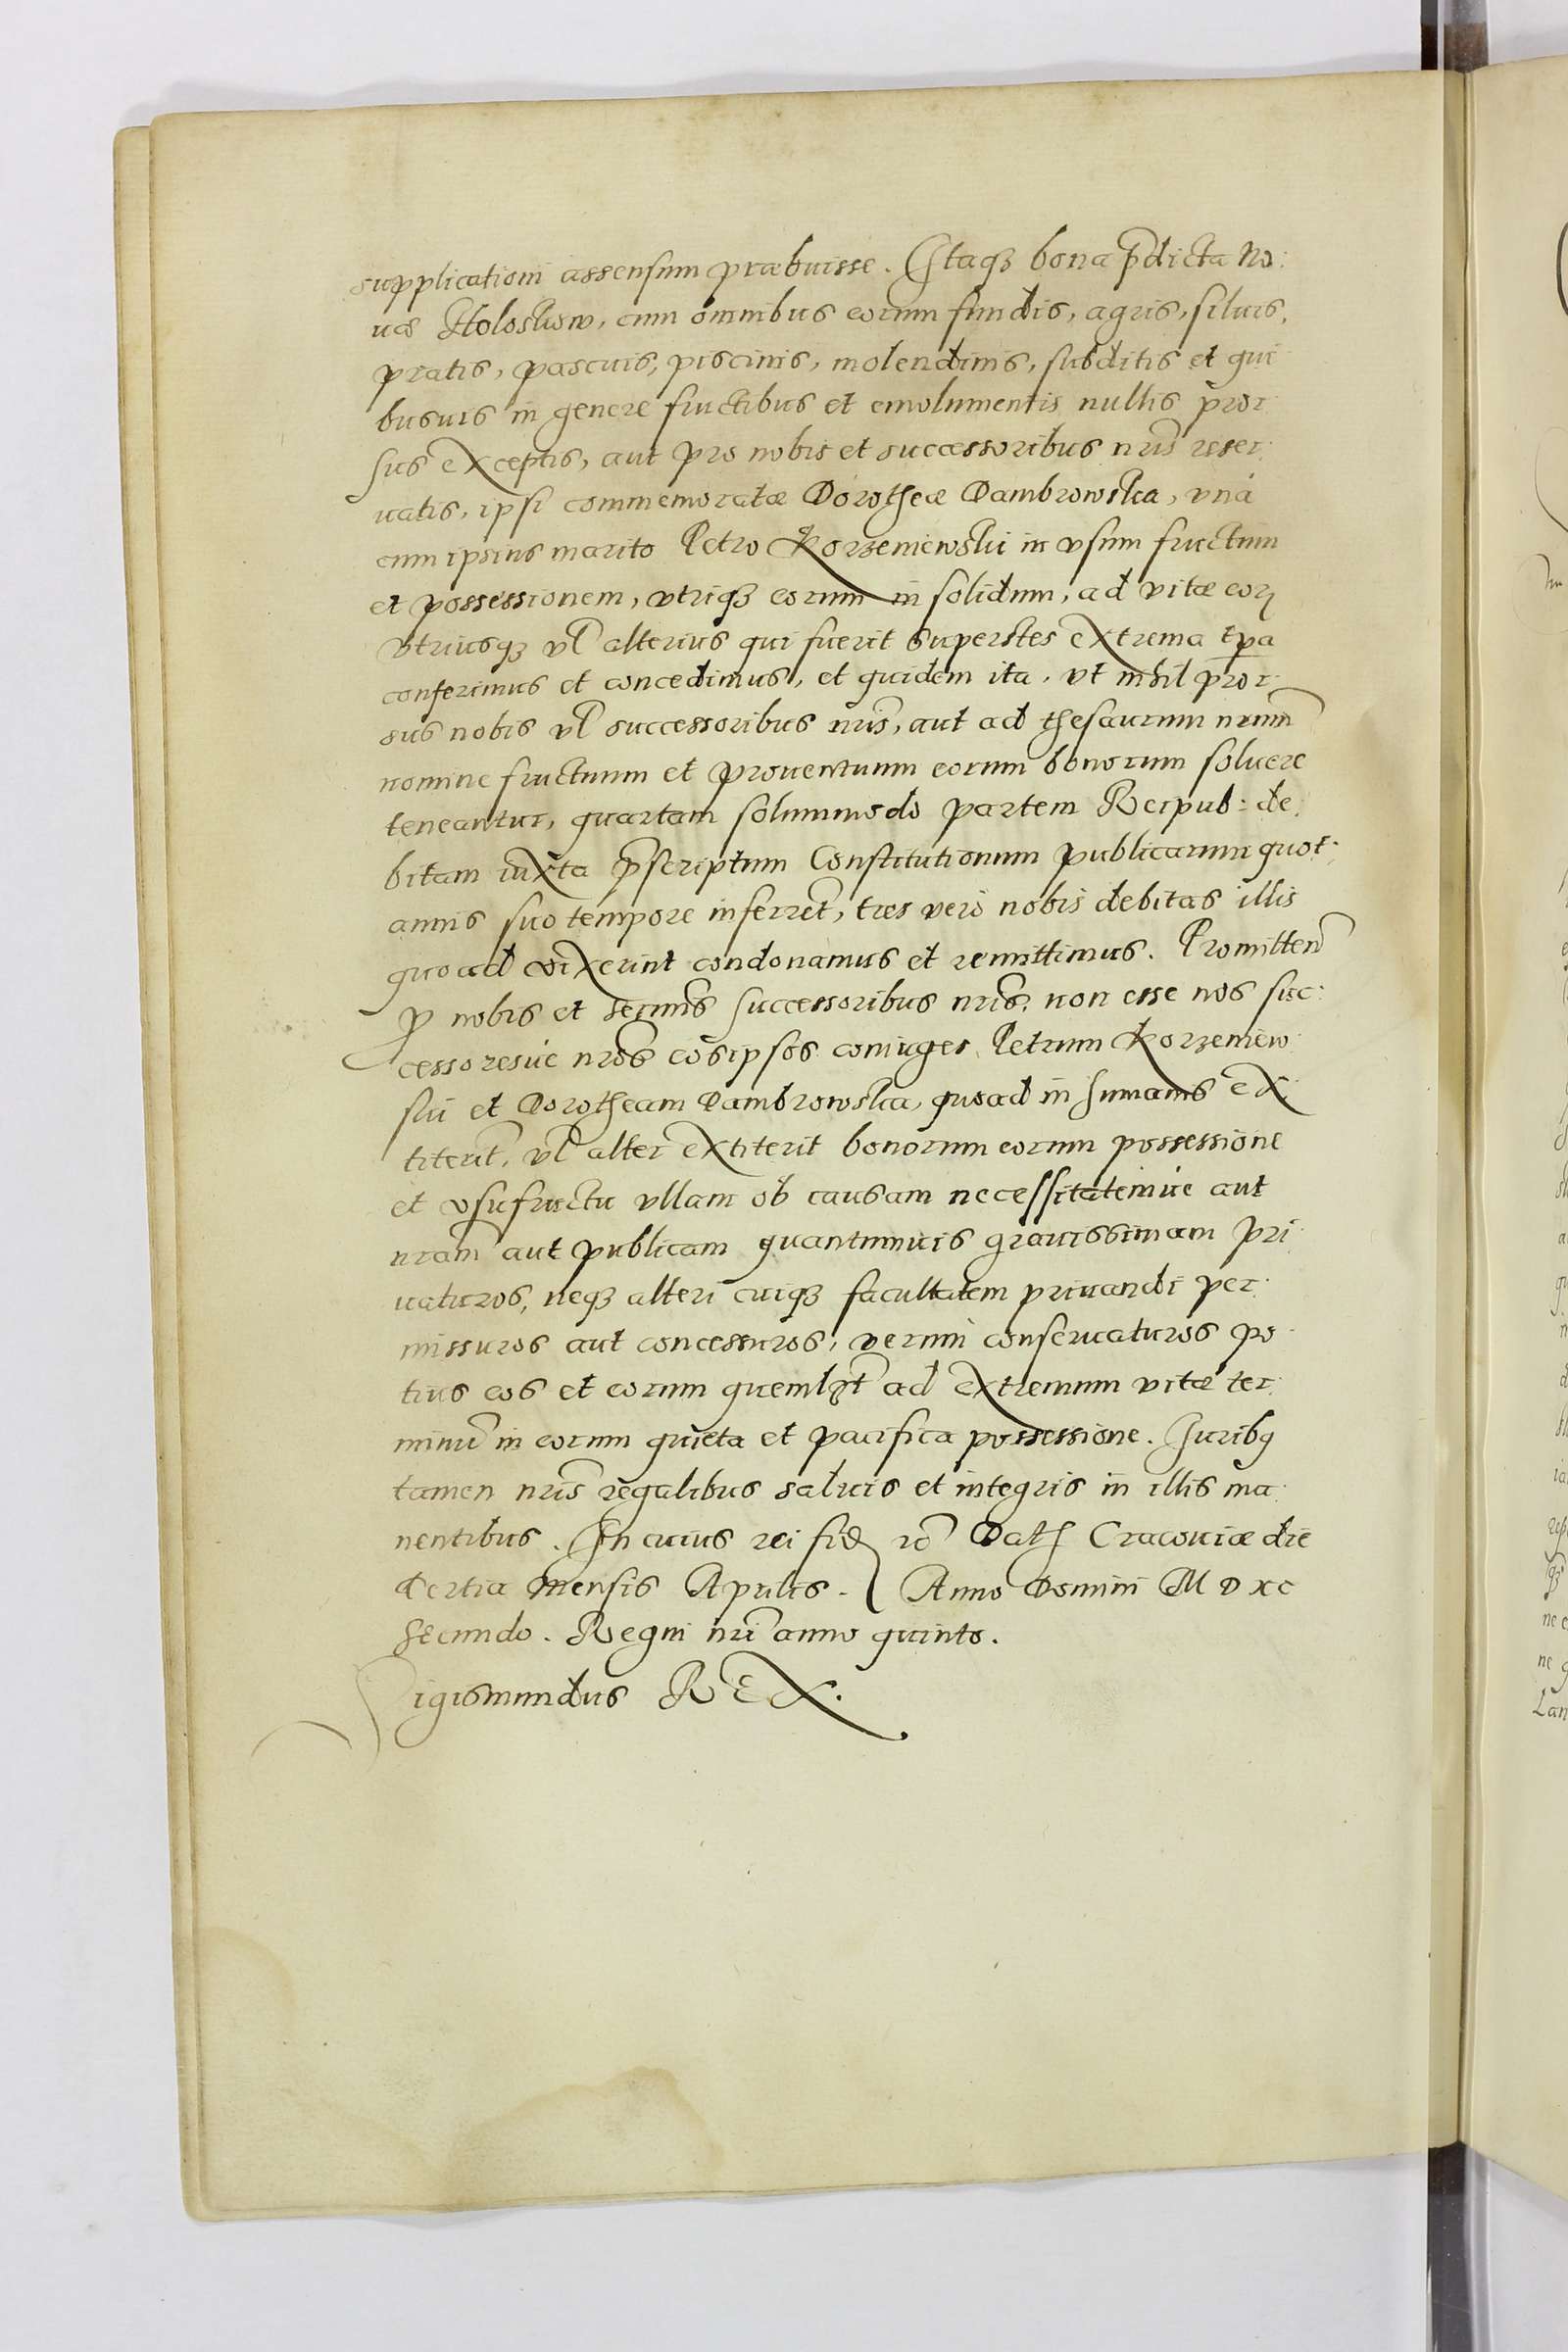 supplicationi assensum præbuisse. Itaqꝫ bona p̄dicta No:
uæ Holoskow, cum omnibus eorum fundis, agris, siluis,
pratis, pascuis, piscinis, molendinis, subditis et qui
busuis in genere fructibus et emolumentis nullis pror
sus exceptis, aut pro nobis et successoribus nr̄is reser
uatis, ipsi commemoratæ Dorotheæ Dambrowska, vná
cum ipsius marito Petro Korzeniewski in vsum fructum
et possessionem, vtriqꝫ eorum in solidum, ad vitæ eoꝝ
vtriusqꝫ vl̄ alterius qui fuerit superstes extrema tp̄a
conferimus et concedimus, et quidem ita, vt nihil pror
sus nobis vl̄ successoribus nr̄is, aut ad thesaurum nr̄um
nomine fructuum et prouentuum eorum bonorum soluere
teneantur, quartam solummodo partem Reipub: de
bitam iuxta p̄scriptum Constitutionum publicarum quot
annis suo tempore inferrēt, tres verò nobis debitas illis
quoad vixerint condonamus et remittimus. Promitteñ
ꝓ nobis et serm̄is successoribus nr̄is, non esse nos suc:
cessoresue nr̄os eos ipsos coniuges Petrum Korzeniew
ski et Dorotheam Dambrowska, quoad in humanis ex
titerīt, vl̄ alter extiterit bonorum eorum possessione
et vsufructu vllam ob causam necessitatemue aut
nr̄am aut publicam quantumuis grauissimam pri
uaturos, neqꝫ alteri cuiqꝫ facultatem priuandi per
missuros aut concessuros, verum conseruaturos po
tius eos et eorum quemlꝫt ad extremum vitæ ter
minū in eorum quieta et pacifica possessione. Juribꝰ
tamen nr̄is regalibus saluis et integris in illis ma
nentibus. In cuius rei fidē rc̄ Dat̄ Cracouiæ die
tertia mensis Aprilis. Anno Domini M D XC
secundo. Regni nr̄i anno quinto.
Sigismundus REX.